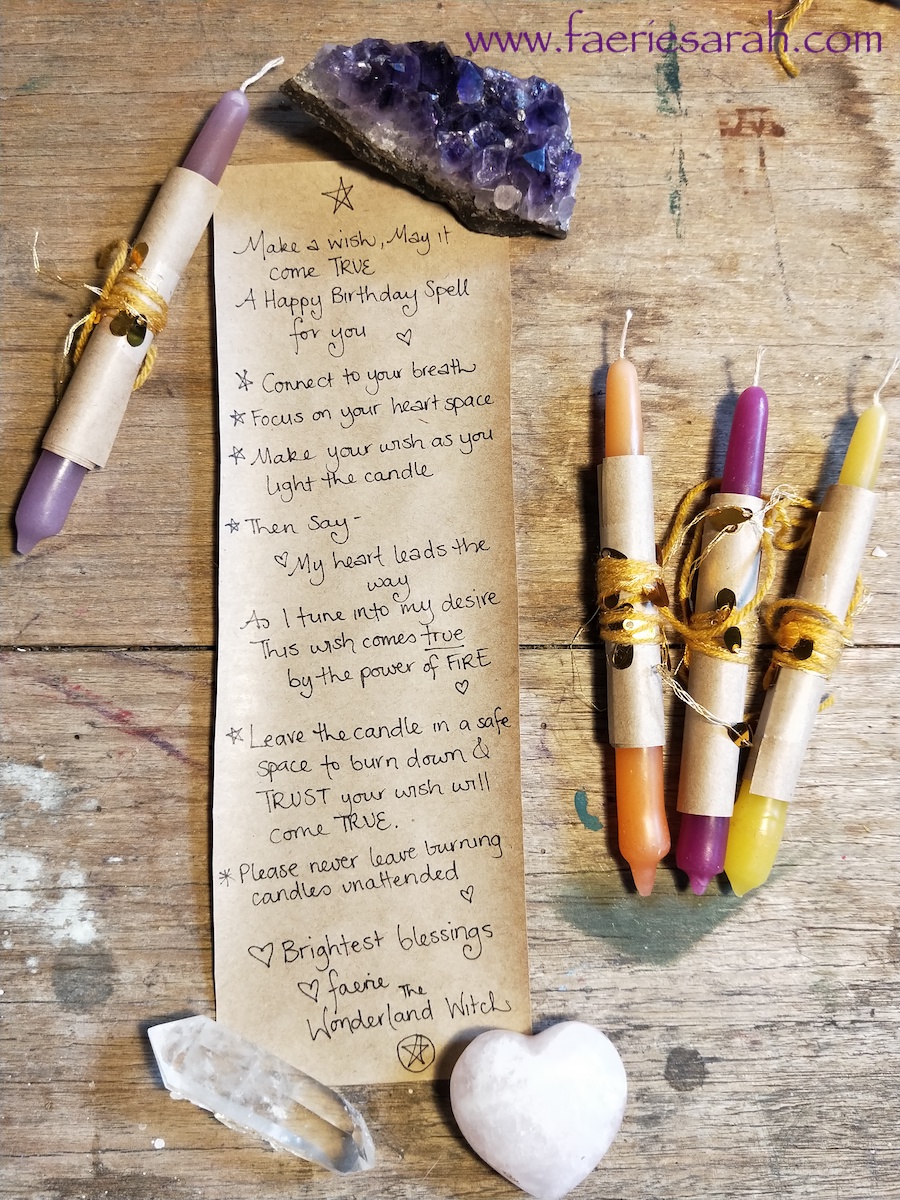 www.faeriesarah.com
Make a wish, May it
come TRUE
A Happy Birthday Spell
for you
Connect to your breath
Focus on your heart space
Make your wish as you
light the candle
Then Say-
My heart leads the
way
As I tune into my desire
This wish comes true
by the power of FIRE
Leave the candle in a safe
space to burn down &
TRUST your wish will
come TRUE.
* Please never leave burning
candles unattended
Brightest blessings
faerie The
Wonderland Witch